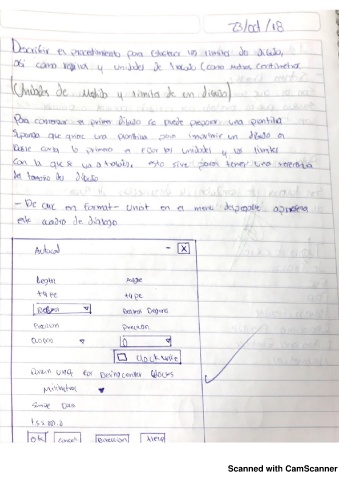 23/01/18
Describir el procedimiento para establecer los limites de dibujo,
así como regilla y unidades de trabajo (como metros centimetros
(Unidades de Medida y limites de un dibujo)
Para comenzar el primer dibujo se puede preparar una plantilla
Suponga que quiere una plantilla para imprimir un dibujo en
carta lo primero es con las unidades y los limites
con la que se va a trabajar, esto sirve para tener una referencia
del tamaño del dibujo
- De clic en format - Unit en el menú desplegable aparecera
este cuadro de dialogo
Autocad - X
Length Angle
type type
Decimal Decimal Degrees
Precision Precision
0.0000 0
Clockwise
units for Design center blocks
Milimeters
OK Cancel Direccion Help
Scanned with CamScanner